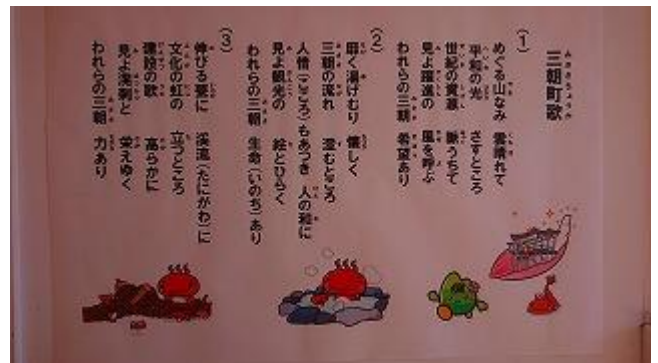 三朝町歌
(1)
めぐる山なみ 雲晴れて
平和の光 さすところ
世紀の資源 脈うちて
見よ躍進の 風を呼ぶ
われらの三朝 希望あり
(2)
靡く湯けむり 懐しく
三朝の流れ 澄むところ
人情(こころ)もあつき 人の和に
見よ観光の 絵とひらく
われらの三朝 生命(いのち)あり
(3)
伸びる甍に 渓流(たにがわ)に
文化の虹の 立つところ
建設の歌 高らかに
見よ溌剌と 栄えゆく
われらの三朝 力あり